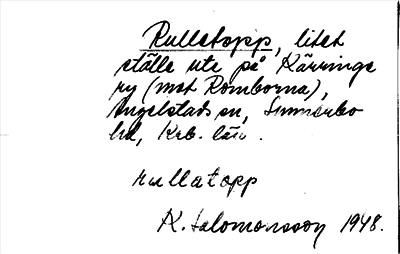 Rullatopp, litet
ställe ute på Kärringe
ry (mot Romborna),
Angelstads sn, Sunnerbo
hd, Krb. län.
rullatopp
K. Salomonsson 1948.